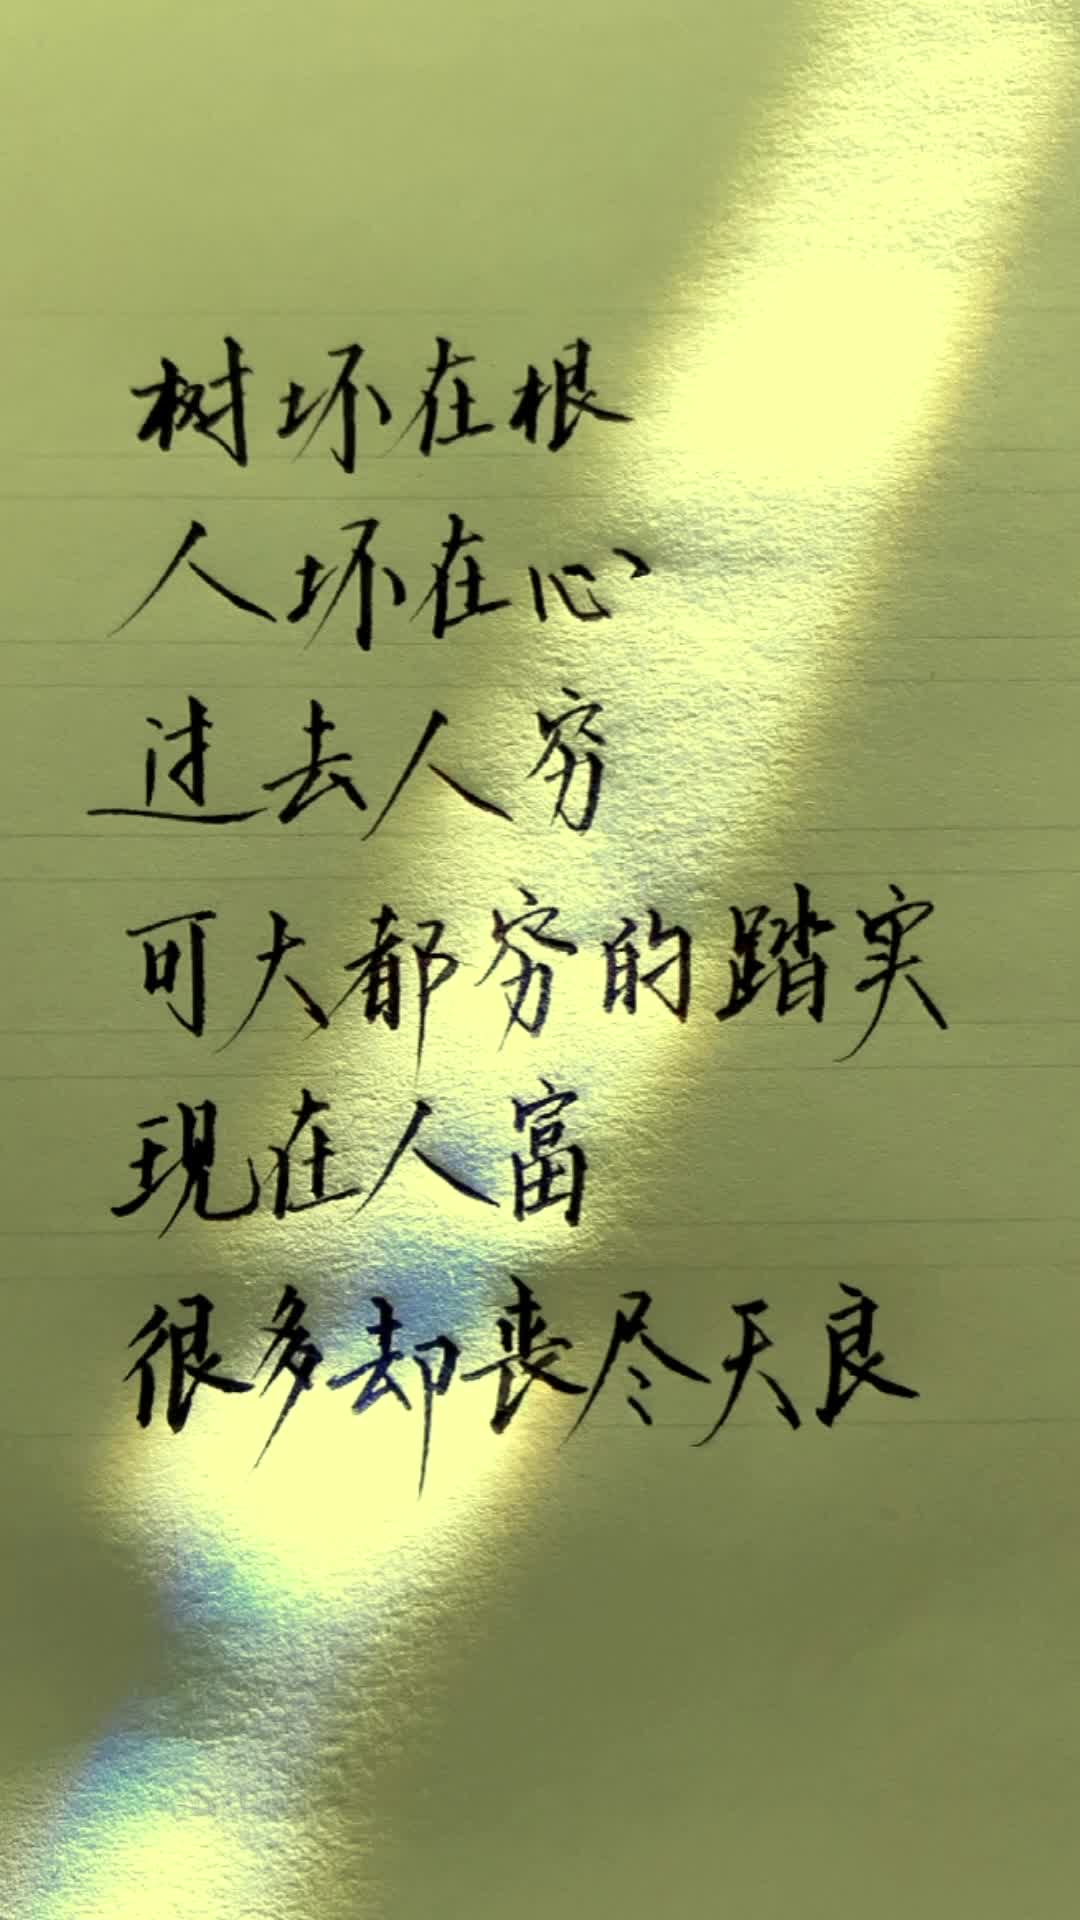 树坏在根
人坏在心
过去人穷
可大都穷的踏实
现在人富
很多却丧尽天良